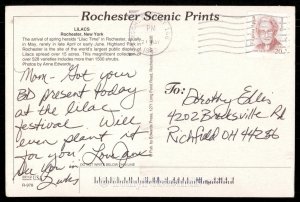 Rochester Scenic Prints
LILACS
Rochester, New York
The arrival of spring heralds "Lilac Time" in Rochester, usually
in May, rarely in late April or early June. Highland Park in
Rochester is the site of the world's largest public display of
Lilacs spread over 15 acres. This magnificent collection of
over 528 varieties includes more than 1500 shrubs.
Photos by Anne Edwards
PM
USA
Mom - Got your
BD present today
at the lilac
festival. Will
even plant it
for you. Love, Jane
See you in
To:
Dorothy Eales
4202 Brecksville Rd
Richfield OH 44286
R-978
DO NOT WRITE BELOW THIS LINE